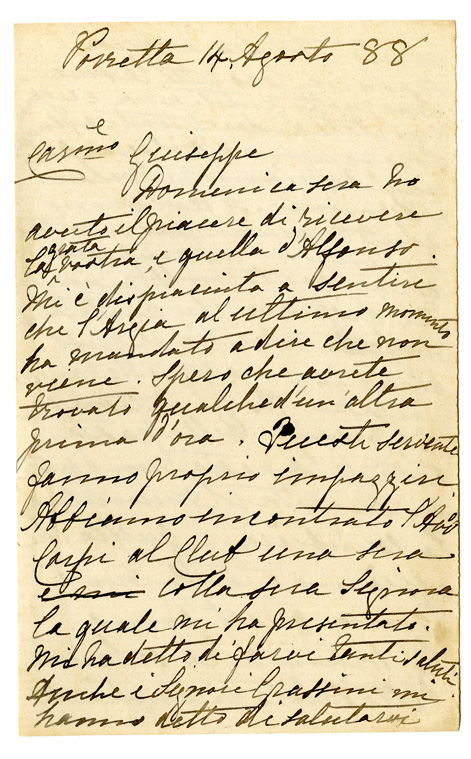 Porretta 14, Agosto 88
Carmo e Giuseppe
Domenica sera ho
avuto il piacere di ricevere
la grata vostra, e quella d'Alfonso.
Mi è dispiaciuta a sentire
che l'Argia al ultimo momento
ha mandato a dire che non
viene. Spero che avrete
trovato qualched'un'altra
prima d'ora. Queste servente
fanno proprio impazzire
Abbiamo incontrato l'Avo
Carpi al Club una sera
e mi colla sua Signora
la quale mi ha presentato.
Mi ha detto di farvi tanti saluti.
Anche i Signori Grassini mi
hanno detto di salutarvi